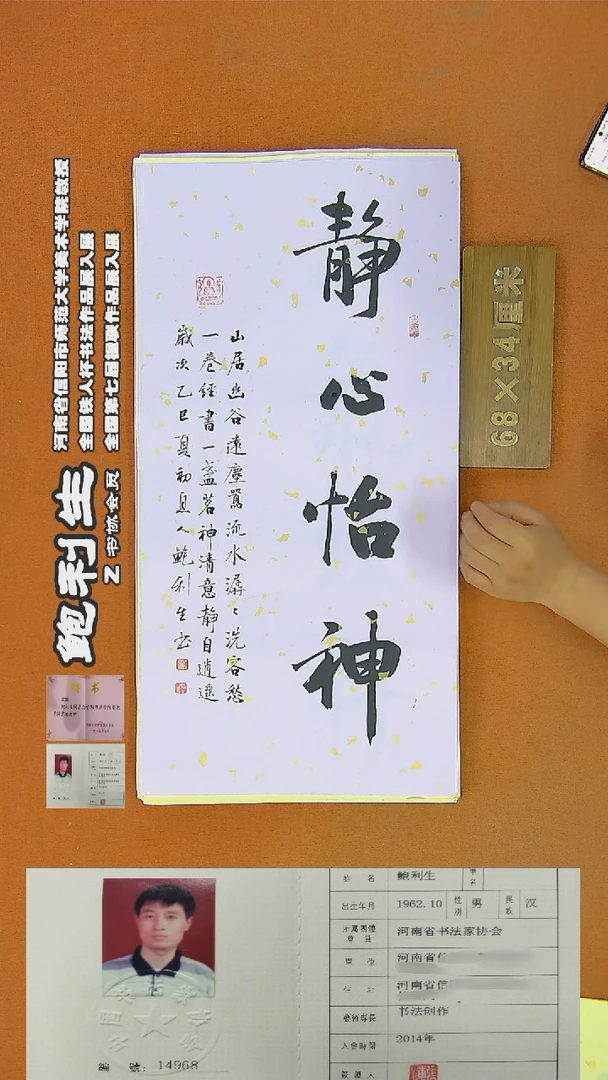 静心怡神
山居幽谷远尘嚣流水潺〻洗客愁
一卷经书一盏茗神清意静自逍遥
岁次乙巳夏初息人鲍利生书
68×34厘米
河南省信阳市师范大学美术学院教授
全国铁人杯书法作品展入展
全国第七届楹联作品展入展
鲍利生
Z书协会员
证书
姓名 鲍利生
出生年月 1962.10 性别 男 民族 汉
河南省书法家协会
河南省信
河南省信
书法创作
入会时间 2014年
编号:14968